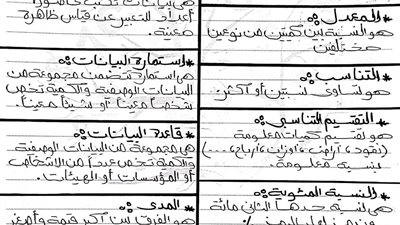 * المعدل :
هو النسبة بين كميتين من نوعين
مختلفين
* التناسب :
هو تساوى نسبتين أو أكثر.
* التقسيم التناسبي :
هو تقسيم كميات معلومة
(نقود ، أراضى ، أوزان ، أرباح ، ....)
بنسبه معلومة.
* النسبة المئوية :
هى نسبة حدها الثانى مائة
أعداد للتعبير عن قياس ظاهرة
معينة.
* استمارة البيانات :
هى استمارة تتضمن مجموعة من
البيانات الوصفية والكمية تخص
شخصاً معيناً أو شيئاً معيناً.
* قاعدة البيانات :
هى مجموعة من البيانات الوصفية
والكمية تخص عدداً من الأشخاص
أو المؤسسات أو الهيئات.
* المدى :
هو الفرق بين أكبر قيمة وأصغر